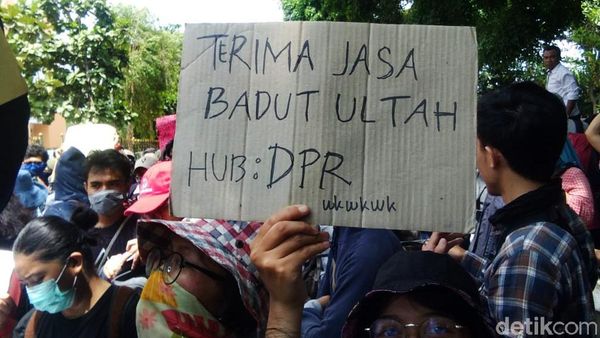 TERIMA JASA
BADUT ULTAH
HUB: DPR
wkwkwk
detikcom